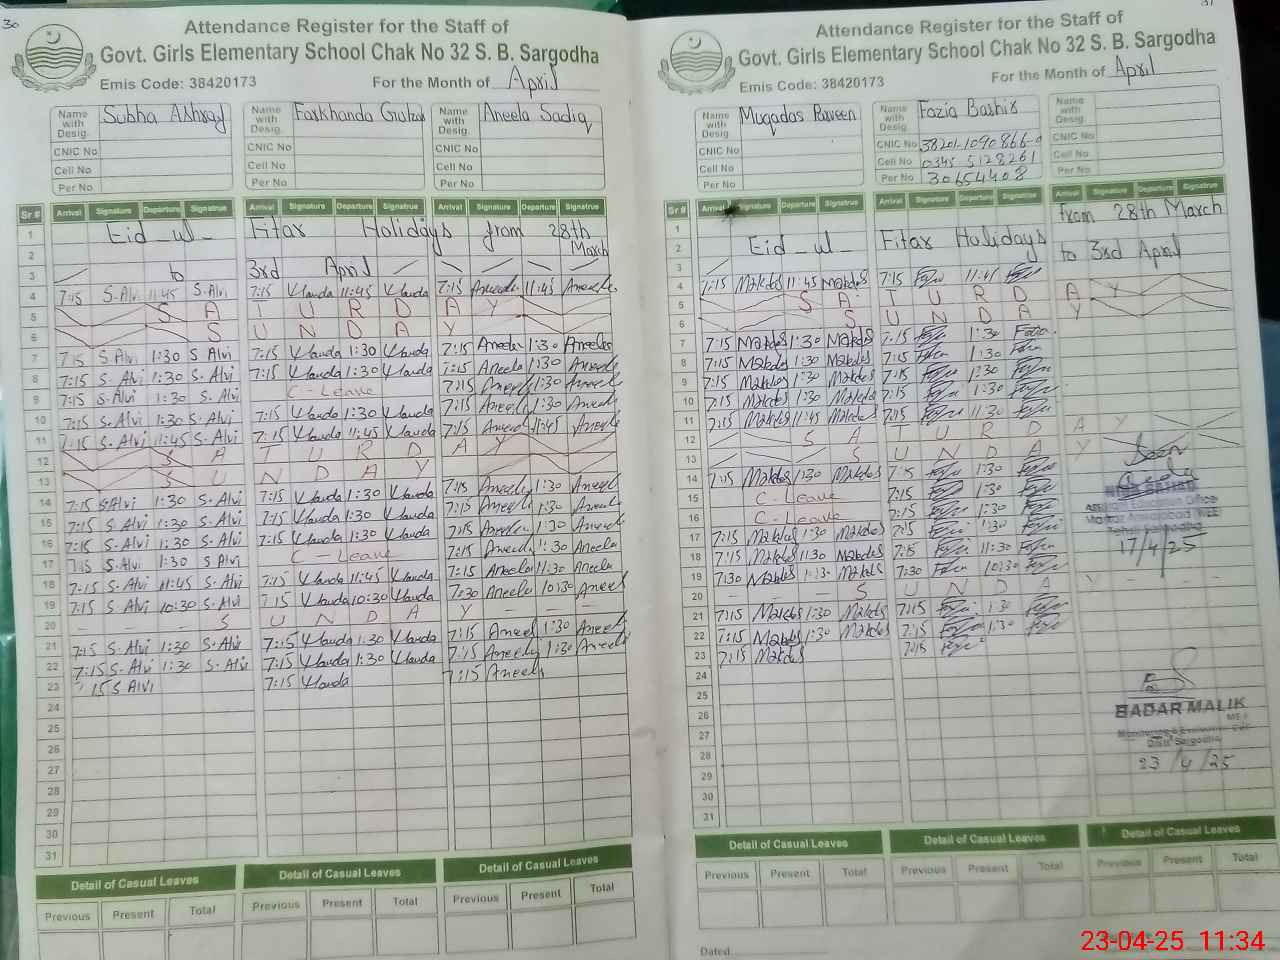 30
Attendance Register for the Staff of
Govt. Girls Elementary School Chak No 32 S. B. Sargodha
Emis Code: 38420173 For the Month of April
Name with Desig. Subha Ashraf Name with Desig. Farkhanda Gulzar Name with Desig. Aneela Sadiq
CNIC No CNIC No CNIC No
Cell No Cell No Cell No
Per No Per No Per No
Sr # Arrival Signature Departure Signatrue Arrival Signature Departure Signatrue Arrival Signature Departure Signatrue
1 Eid-ul- Fitar Holidays from 28th
2 March
3 to 3rd April
4 7:15 S-Alvi 11:45 S-Alvi 7:15 11:45 7:15 Aneela 11:45 Aneela
5 S A T U R D A Y
6 S U N D A Y
7 7:15 S Alvi 1:30 S Alvi 7:15 1:30 7:15 Aneela 1:30 Aneela
8 7:15 S. Alvi 1:30 S. Alvi 7:15 1:30 7:15 Aneela 1:30 Aneela
9 7:15 S. Alvi 1:30 S. Alvi C-Leave 7:15 Aneela 1:30 Aneela
10 7:15 S. Alvi 1:30 S. Alvi 7:15 1:30 7:15 Aneela 1:30 Aneela
11 7:15 S. Alvi 11:45 S. Alvi 7:15 11:45 7:15 Aneela 11:45 Aneela
12 S A T U R D A Y
13 S U N D A Y
14 7:15 S Alvi 1:30 S. Alvi 7:15 1:30 7:15 Aneela 1:30 Aneela
15 7:15 S. Alvi 1:30 S. Alvi 7:15 1:30 7:15 Aneela 1:30 Aneela
16 7:15 S. Alvi 1:30 S. Alvi 7:15 1:30 7:15 Aneela 1:30 Aneela
17 7:15 S. Alvi 1:30 S Alvi C-Leave 7:15 Aneela 1:30 Aneela
18 7:15 S. Alvi 11:45 S. Alvi 7:15 11:45 7:15 Aneela 11:30 Aneela
19 7:15 S. Alvi 10:30 S. Alvi 7:15 10:30 7:30 Aneela 10:30 Aneela
20 S U N D A Y
21 7:15 S. Alvi 1:30 S. Alvi 7:15 1:30 7:15 Aneela 1:30 Aneela
22 7:15 S. Alvi 1:30 S. Alvi 7:15 1:30 7:15 Aneela 1:30 Aneela
23 15 S Alvi 7:15 7:15 Aneela
24
25
26
27
28
29
30
31
Detail of Casual Leaves Detail of Casual Leaves Detail of Casual Leaves
Previous Present Total Previous Present Total Previous Present Total
31
Attendance Register for the Staff of
Govt. Girls Elementary School Chak No 32 S. B. Sargodha
Emis Code: 38420173 For the Month of April
Name with Desig Muqadas Parveen Name with Desig. Fozia Bashir Name with Desig.
CNIC No CNIC No 38201-1090866-0 CNIC No
Cell No Cell No 0345 5128261 Cell No
Per No Per No 30654408 Per No
Sr # Arrival Signature Departure Signatrue Arrival Signature Departure Signatrue Arrival Signature Departure Signatrue
1 from 28th March
2 Eid-ul- Fitar Holidays to 3rd April
3
4 7:15 Makdos 11:45 Makdos 7:15
5 S A T U R D A Y
6 S U N D A Y
7 7:15 Makdos 1:30 Makdos 7:15 1:30
8 7:15 Makdos 1:30 Makdos 7:15 1:30
9 7:15 Makdos 1:30 Makdos 7:15 1:30
10 7:15 Makdos 1:30 Makdos 7:15 1:30
11 7:15 Makdos 11:45 Makdos 7:15 11:30
12 S A T U R D A Y
13 S U N D A Y
14 7:15 Makdos 1:30 Makdos 7:15 1:30
15 C-Leave 7:15 1:30
16 C-Leave 7:15 1:30
17 7:15 Makdos 1:30 Makdos 7:15 1:30
18 7:15 Makdos 11:30 Makdos 7:15 11:30
19 7:30 Makdos Makdos 7:30 10:30
20 S U N D A Y
21 7:15 Makdos 1:30 Makdos 7:15 1:30
22 7:15 Makdos 1:30 Makdos 7:15 1:30
23 7:15 Makdos 7:15
24
25
26
27
28
29
30
31
Seen
17/4/25
BADAR MALIK
Distt: Sargodha
23/4/25
Detail of Casual Leaves Detail of Casual Leaves Detail of Casual Leaves
Previous Present Total Previous Present Total Previous Present Total
Dated
23-04-25 11:34